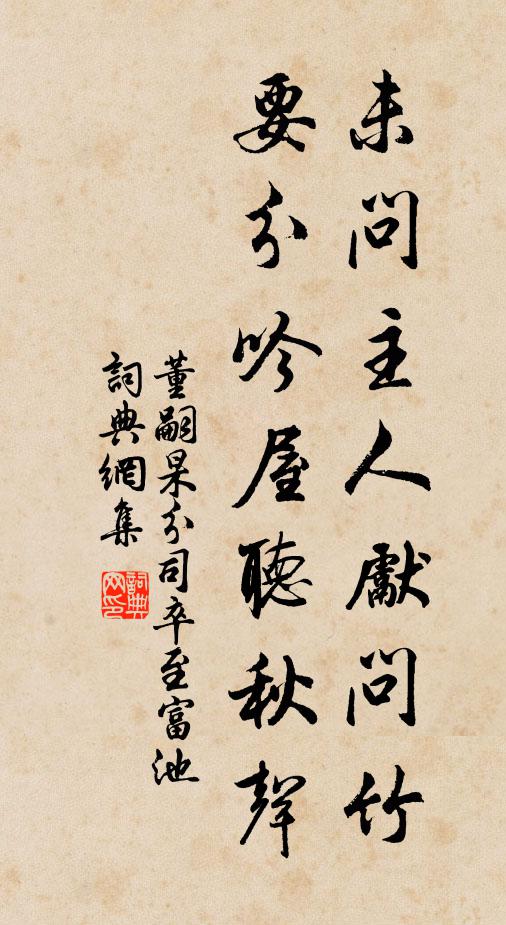 未問主人獻問竹
要分吟屋聽秋聲
董嗣杲分司卒至富池
詞典網集
詞典
网印